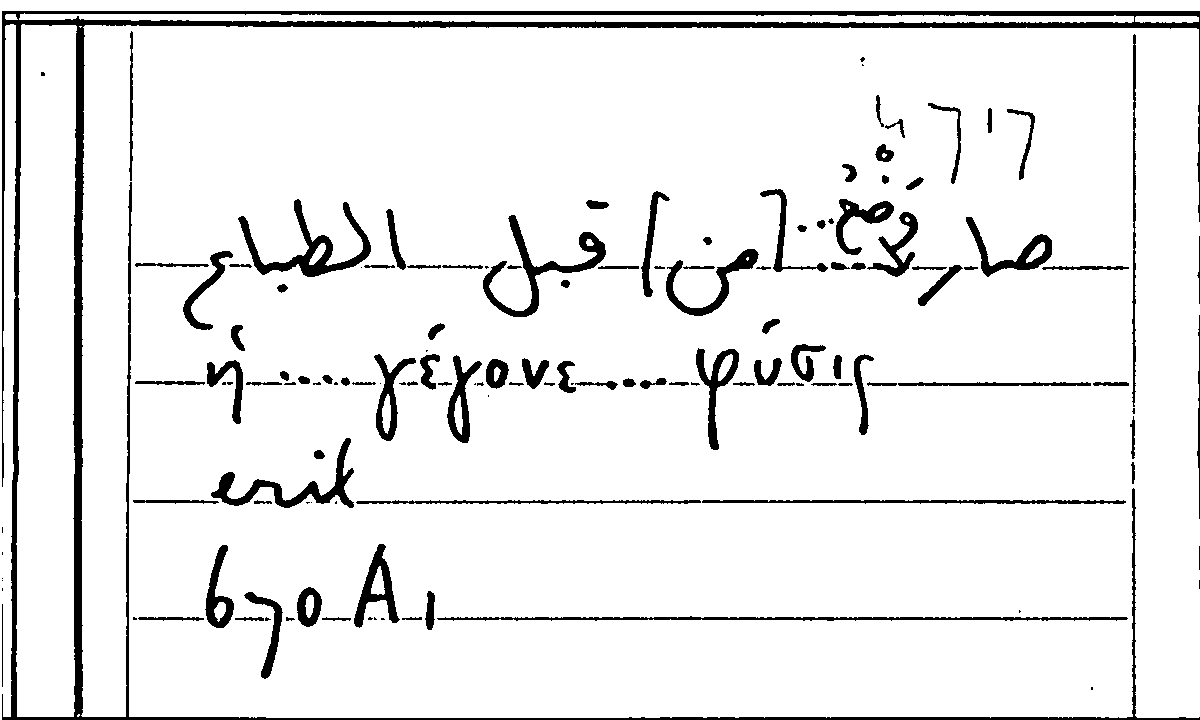 صار وضع ... [من] قبل الطباع
ἡ .... γέγονε .... φύσις
erit
670 A1